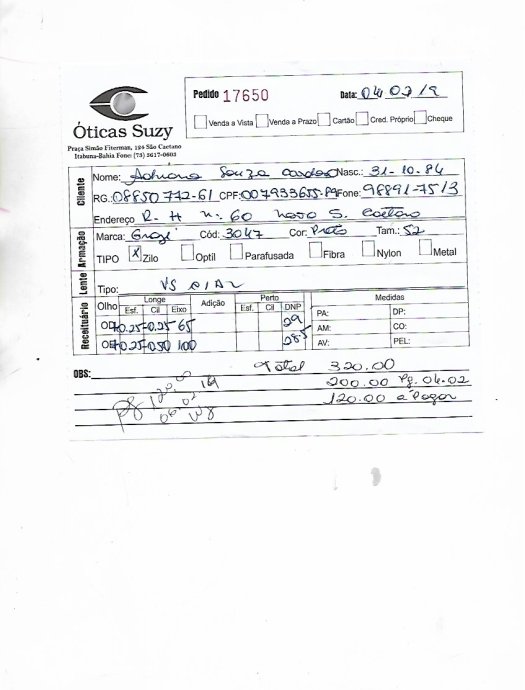 Pedido 17650 Data: 04 02 19
Venda a Vista Venda a Prazo Cartão Cred. Próprio Cheque
Óticas Suzy
Praça Simão Fiterman, 124 São Caetano
Itabuna-Bahia Fone: (73) 3617-0603
Cliente
Nome: Adriana Souza Cardoso Nasc.: 31-10-84
RG.: 08850772-61 CPF: 007933655-89 Fone: 98891-7513
Endereço R. H nº 60 novo S. Caetano
Armação
Marca: Cód: 3047 Cor: Preto Tam.: 52
TIPO X Zilo Optil Parafusada Fibra Nylon Metal
Lente
Tipo: VS
Receituário
Olho Longe Adição Perto Medidas
Esf. Cil Eixo Esf. Cil DNP PA: DP:
OD +0.25 -0.25 65 29 AM: CO:
OE +0.25 -0.50 100 28.5 AV: PEL:
OBS: Total 320.00
200.00 Pg. 04.02
120.00 a Pagar
Pg 120,00
06.02